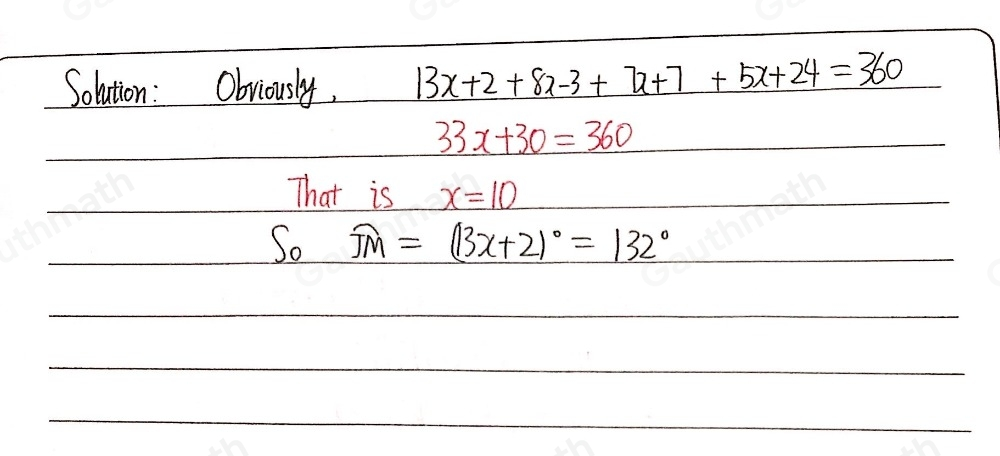 Solution: Obviously, 13x+2+8x-3+7x+7+5x+24=360
33x+30=360
That is x=10
So J͡M = (13x+2)°=132°